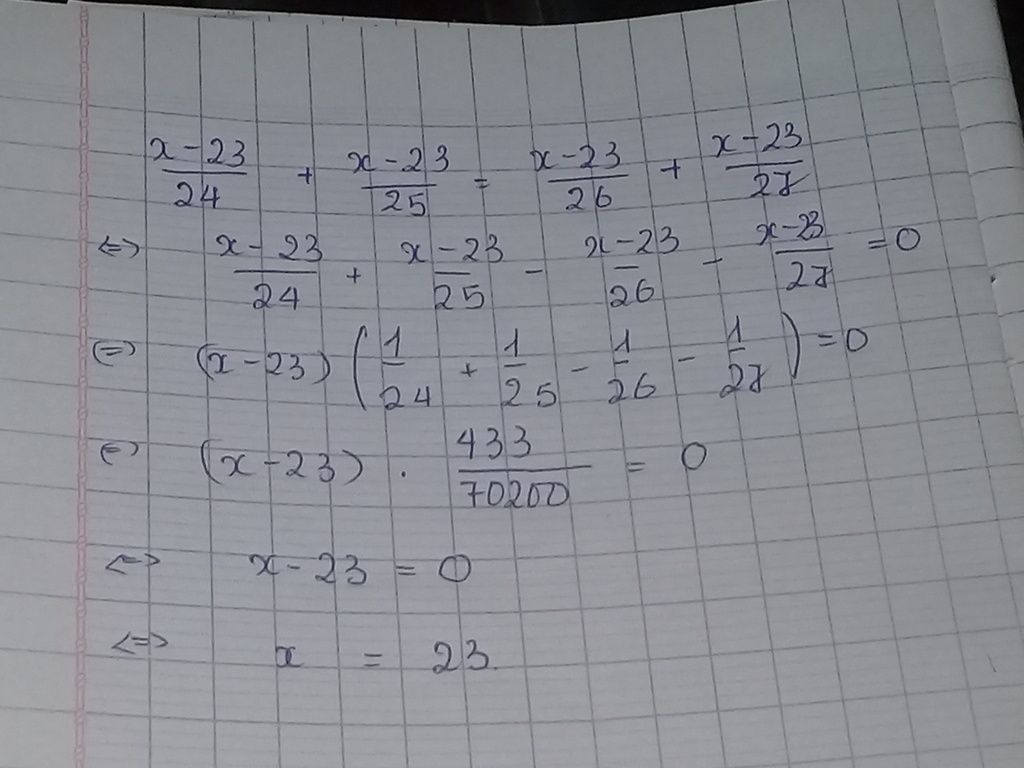 \frac{x-23}{24} + \frac{x-23}{25} = \frac{x-23}{26} + \frac{x-23}{27}
⇔ \frac{x-23}{24} + \frac{x-23}{25} - \frac{x-23}{26} - \frac{x-23}{27} = 0
⇔ (x-23) (\frac{1}{24} + \frac{1}{25} - \frac{1}{26} - \frac{1}{27}) = 0
⇔ (x-23) . \frac{433}{70200} = 0
⇔ x-23 = 0
⇔ x = 23